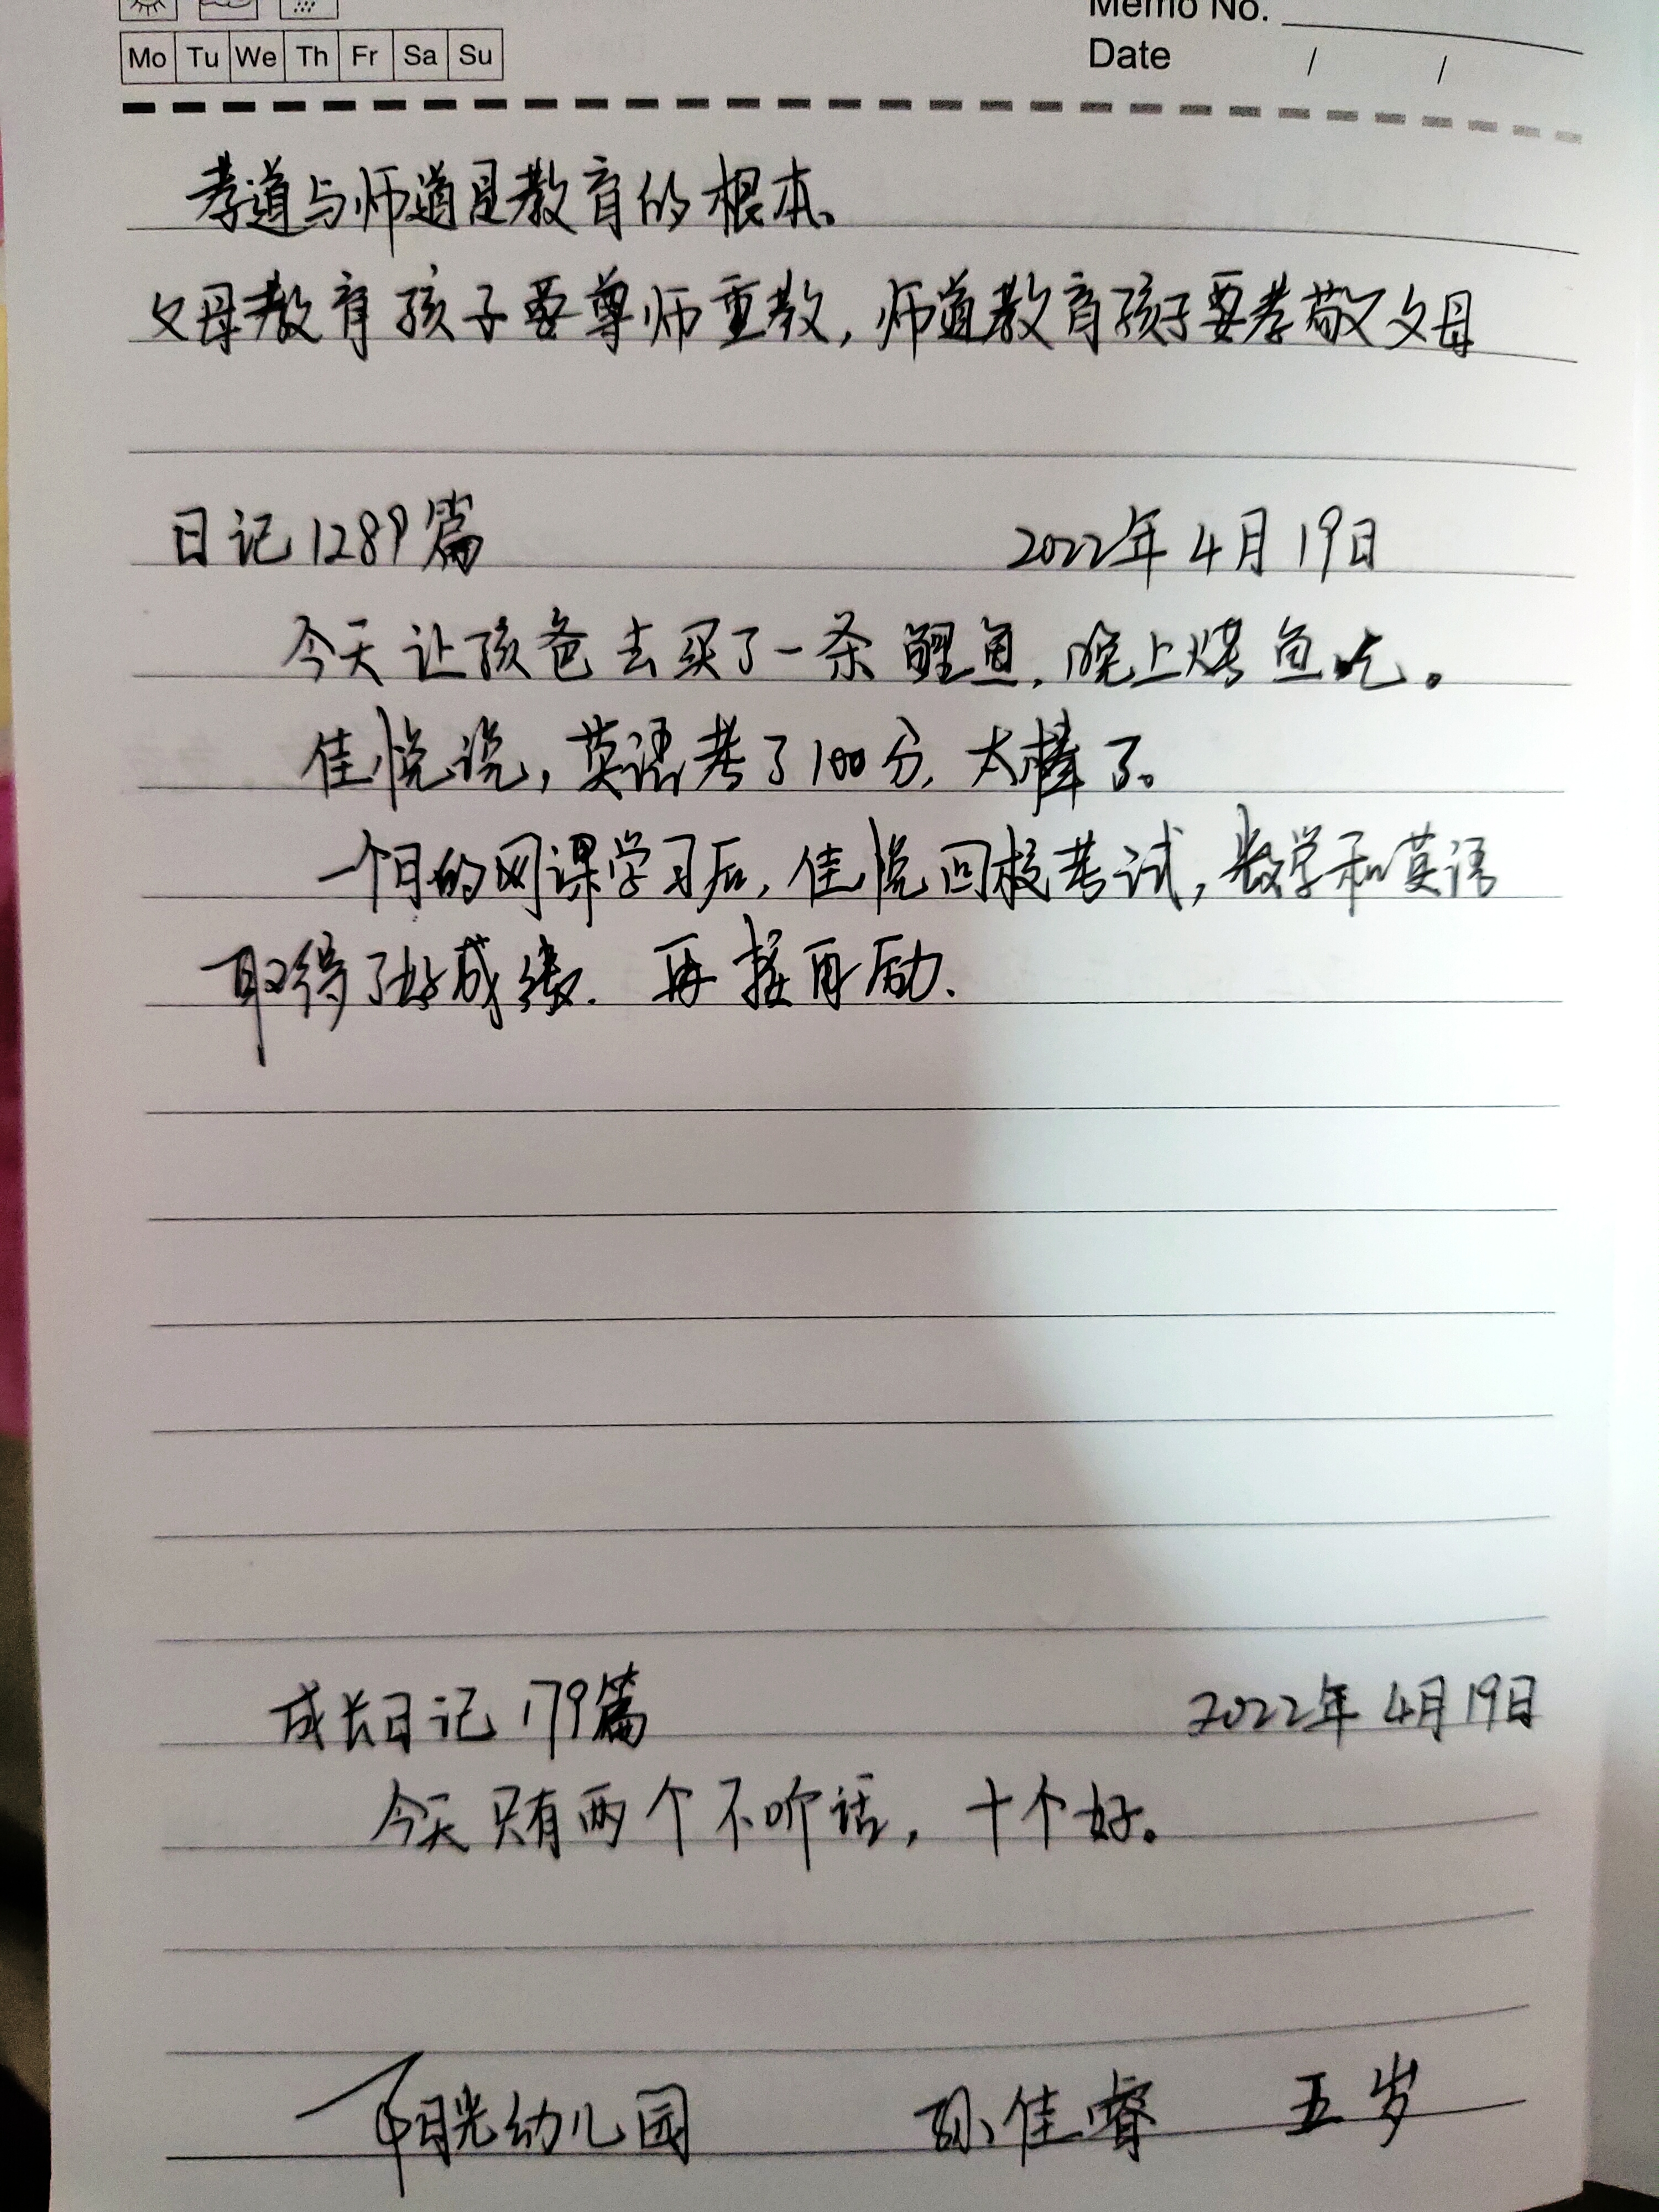 Memo No.
Mo Tu We Th Fr Sa Su
Date / /
孝道与师道是教育的根本。
父母教育孩子要尊师重教,师道教育孩子要孝敬父母
日记1289篇 2022年4月19日
今天让孩爸去买了一条鲤鱼,晚上烤鱼吃。
佳悦说,英语考了100分,太棒了。
一个月的网课学习后,佳悦回校考试,数学和英语
取得了好成绩.再接再励.
成长日记179篇 2022年4月19日
今天只有两个不听话,十个好。
阳光幼儿园 孙佳睿 五岁